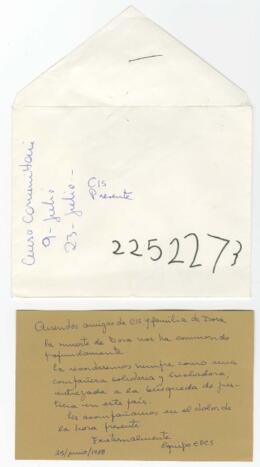 Curso Comunitario
9 - julio
23 - julio -
CIS
Presente
2252273
Queridos amigos de CIS y familia de Dora
La muerte de Dora nos ha conmovido
profundamente.
La recordaremos siempre como una
compañera solidaria y
entregada a la búsqueda de jus-
ticia en este país.
Les acompañamos en el dolor de
la hora presente
Fraternalmente
Equipo
25/junio/1988